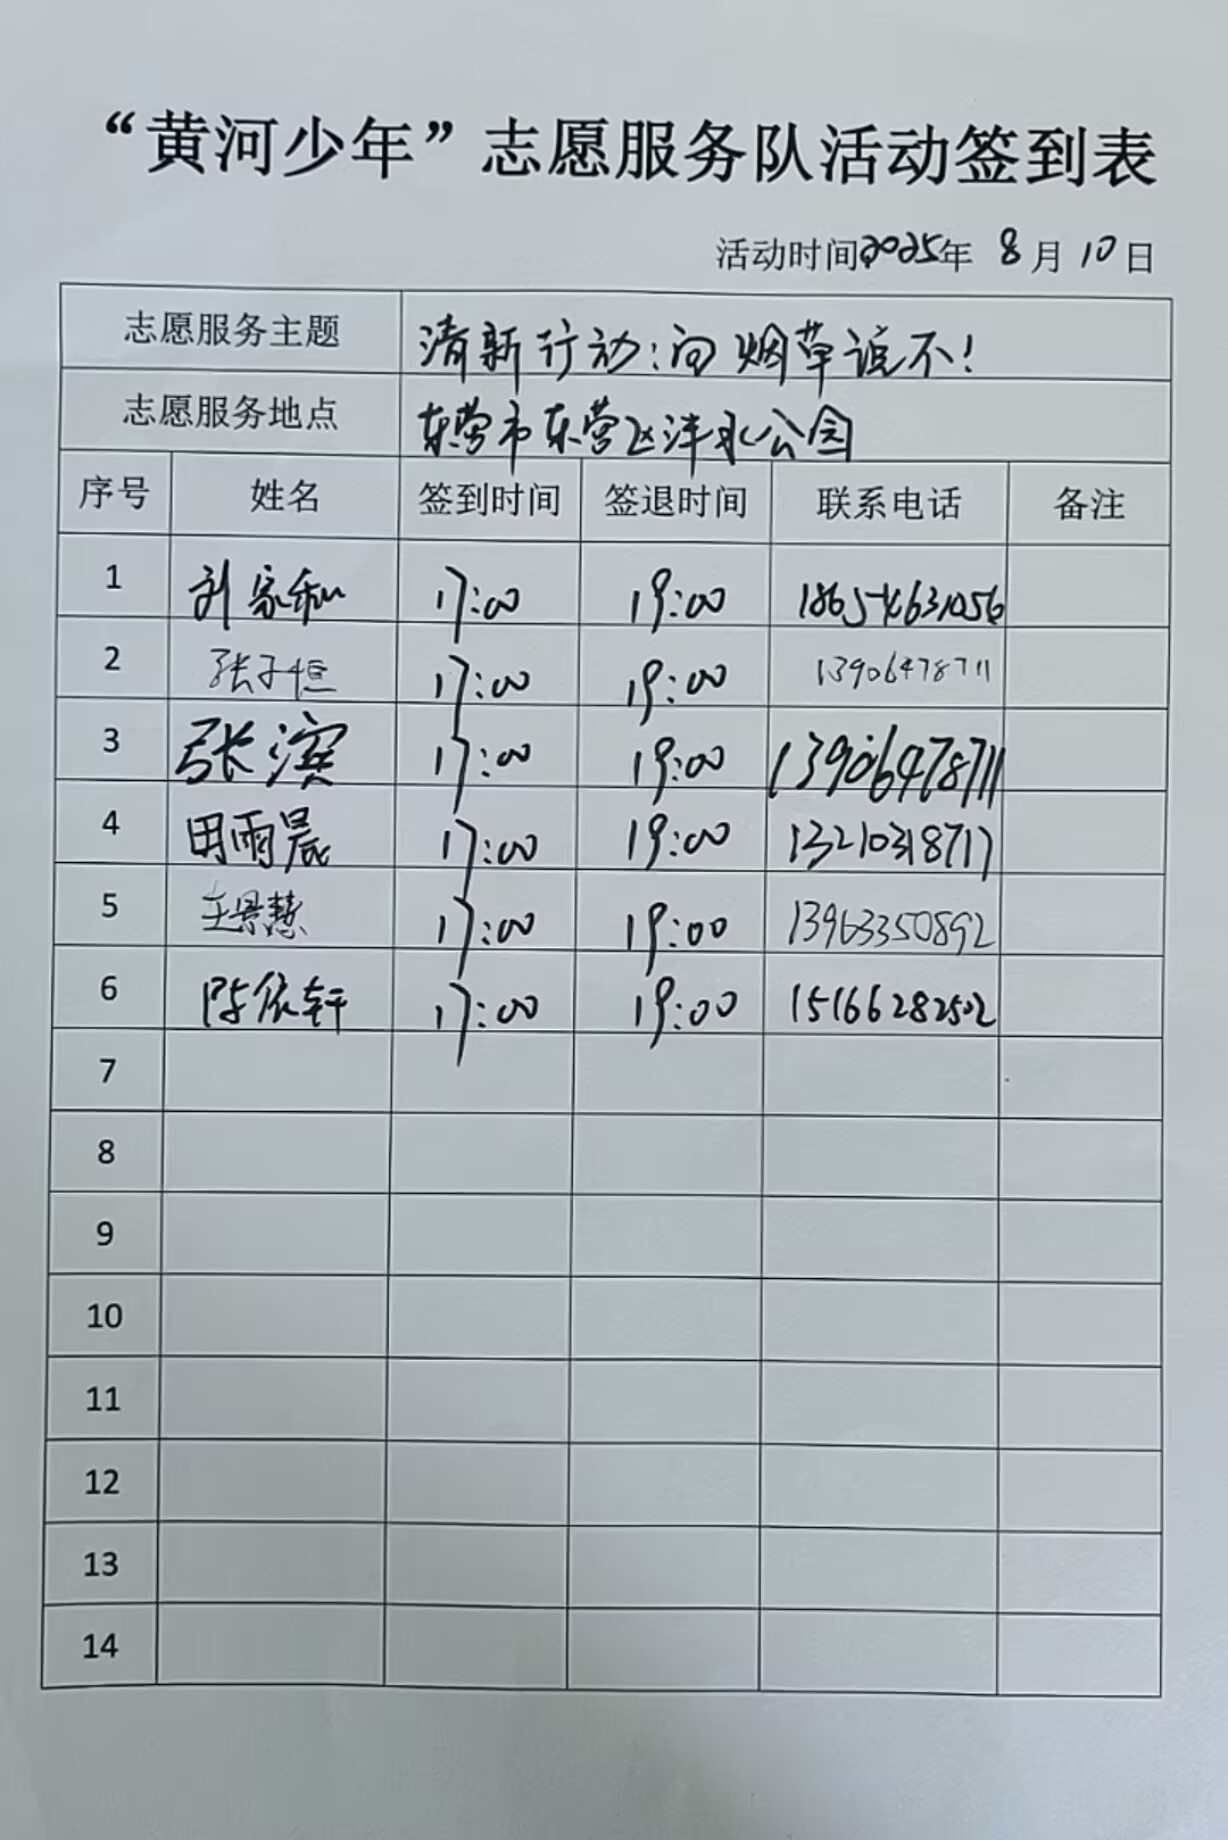 “黄河少年”志愿服务队活动签到表
活动时间2025年 8月10日
志愿服务主题 清新行动:向烟草说不!
志愿服务地点 东营市东营区沣水公园
序号 姓名 签到时间 签退时间 联系电话 备注
1 刘家和 17:00 19:00 18654631056
2 张子恒 17:00 19:00 13906478711
3 张滨 17:00 19:00 13906478711
4 田雨晨 17:00 19:00 13210318717
5 王景慧 17:00 19:00 13963350892
6 陈依轩 17:00 19:00 15166282502
7
8
9
10
11
12
13
14